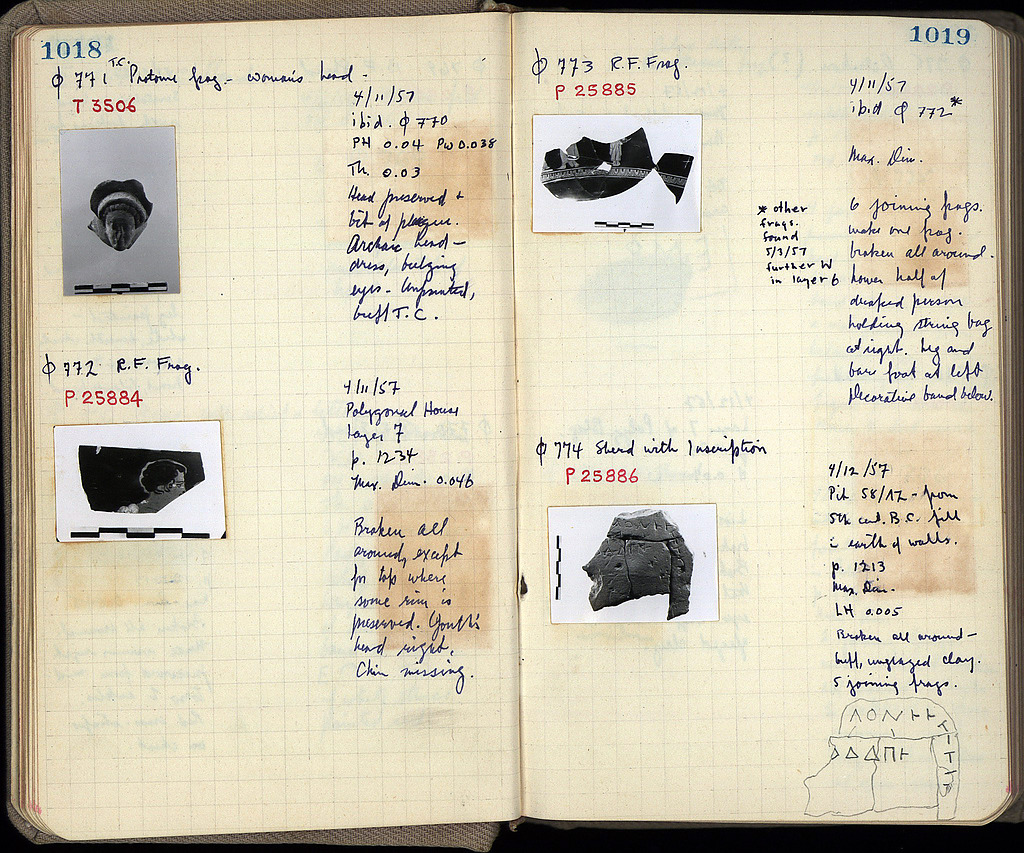 1018
Φ 771 T.C. Protome frag - woman's head -
T 3506
4/11/57
ibid. Φ 770
PH 0.04 PW 0.038
Th. 0.03
Head preserved +
bit of plaque.
Archaic head-
dress, bulging
eyes - Unpainted,
buff T.C.
Φ 772 R.F. Frag.
P 25884
4/11/57
Polygonal House
Layer 7
p. 1234
Max. Dim. 0.046
Broken all
around, except
for top where
some rim is
preserved. Youth's
head right.
Chin missing.
1019
Φ 773 R.F. Frag.
P 25885
4/11/57
ibid Φ 772*
Max. Dim.
* other
frags.
found
5/3/57
further W
in layer 6
6 joining frags.
make one frag.
broken all around.
Lower half of
draped person
holding string bag
at right. Leg and
bare foot at left
Decorative band below.
Φ 774 Sherd with Inscription
P 25886
4/12/57
Pit 58/ΛΖ - from
5th cent. B.C. fill
in earth of walls.
p. 1213
Max. Dim.
LH 0.005
Broken all around -
buff, unglazed clay.
5 joining frags.
ΛΟΝΗ
ΔΔΔΠΗ